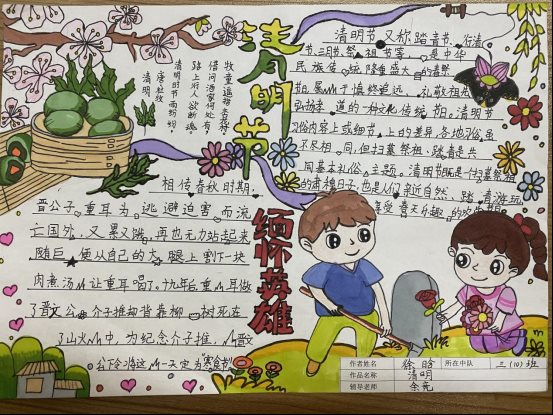 清明节
清明
唐 杜牧
清明时节雨纷纷，
路上行人欲断魂。
借问酒家何处有，
牧童遥指杏花村
清明节又称踏青节、行清
节、三月节、祭祖节等，是中华
民族传统隆重盛大的春祭
节日，属于慎终追远、礼敬祖先
弘扬孝道的一种文化传统节日。清明节
习俗内容上或细节上的差异，各地习俗虽
不尽相同，但扫墓祭祖、踏青是共
同基本礼俗主题。清明节既是一个扫墓祭祖
的肃穆日子，也是人们亲近自然、踏青游玩
享受春天乐趣的欢
相传春秋时期，
晋公子重耳为逃避迫害而流
亡国外，又累又饿，再也无力站起来
随臣便从自己的大腿上割下一块
肉煮汤让重耳喝了，十九年后重耳做
了晋文公，介子推却背靠柳树死在
了山火中，为纪念介子推，晋文
公下令将这一天定为“寒食节”
缅怀英雄
作者姓名 徐晗 所在中队 三(10)班
作品名称 清明
辅导老师 余亮